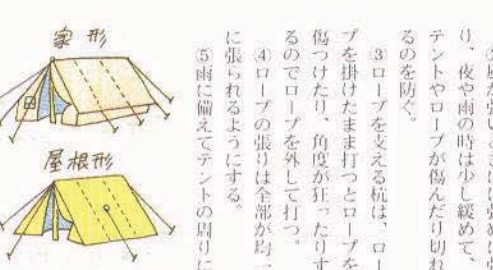 り、夜や雨の時は少し緩めて、
テントやロープが傷んだり切れ
るのを防ぐ。
③ロープを支える杭は、ロー
プを掛けたまま打つとロープを
傷つけたり、角度が狂ったりす
るのでロープを外して打つ。
④ロープの張りは全部が均一
に張られるようにする。
⑤雨に備えてテントの周りに
家形
屋根形